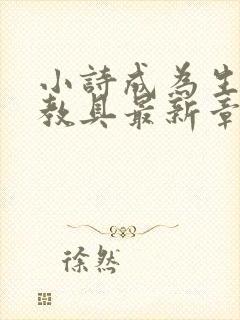 小詩成為生
教具最新章
徐然